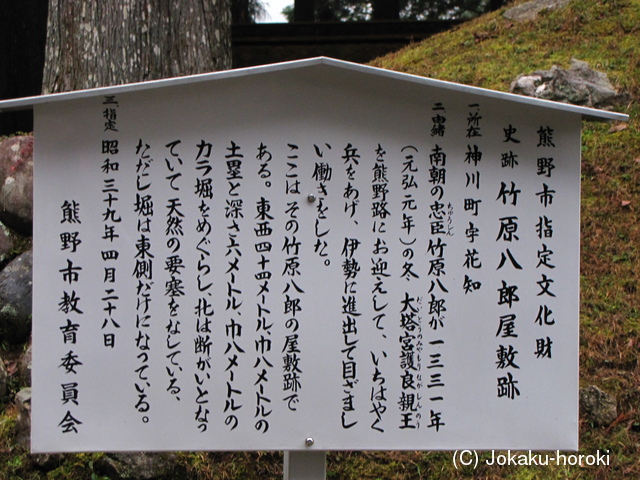 熊野市指定文化財
史跡 竹原八郎屋敷跡
一、所在 神川町字花知
二、由緒 南朝の忠臣竹原八郎が一三三一年
ちゅうしん
(元弘元年)の冬、大塔宮護良親王
だいとうのみやもりながしんのう
を熊野路にお迎えして、いちはやく
兵をあげ、伊勢に進出して目ざまし
い働きをした。
ここはその竹原八郎の屋敷跡で
ある。東西四十四メートル、巾八メートルの
土塁と深さ六メートル、巾八メートルの
カラ堀をめぐらし、北は断がいとなっ
ていて天然の要塞をなしている、
ただし堀は東側だけになっている。
三、指定 昭和三十九年四月二十八日
熊野市教育委員会
(C) Jokaku-horoki